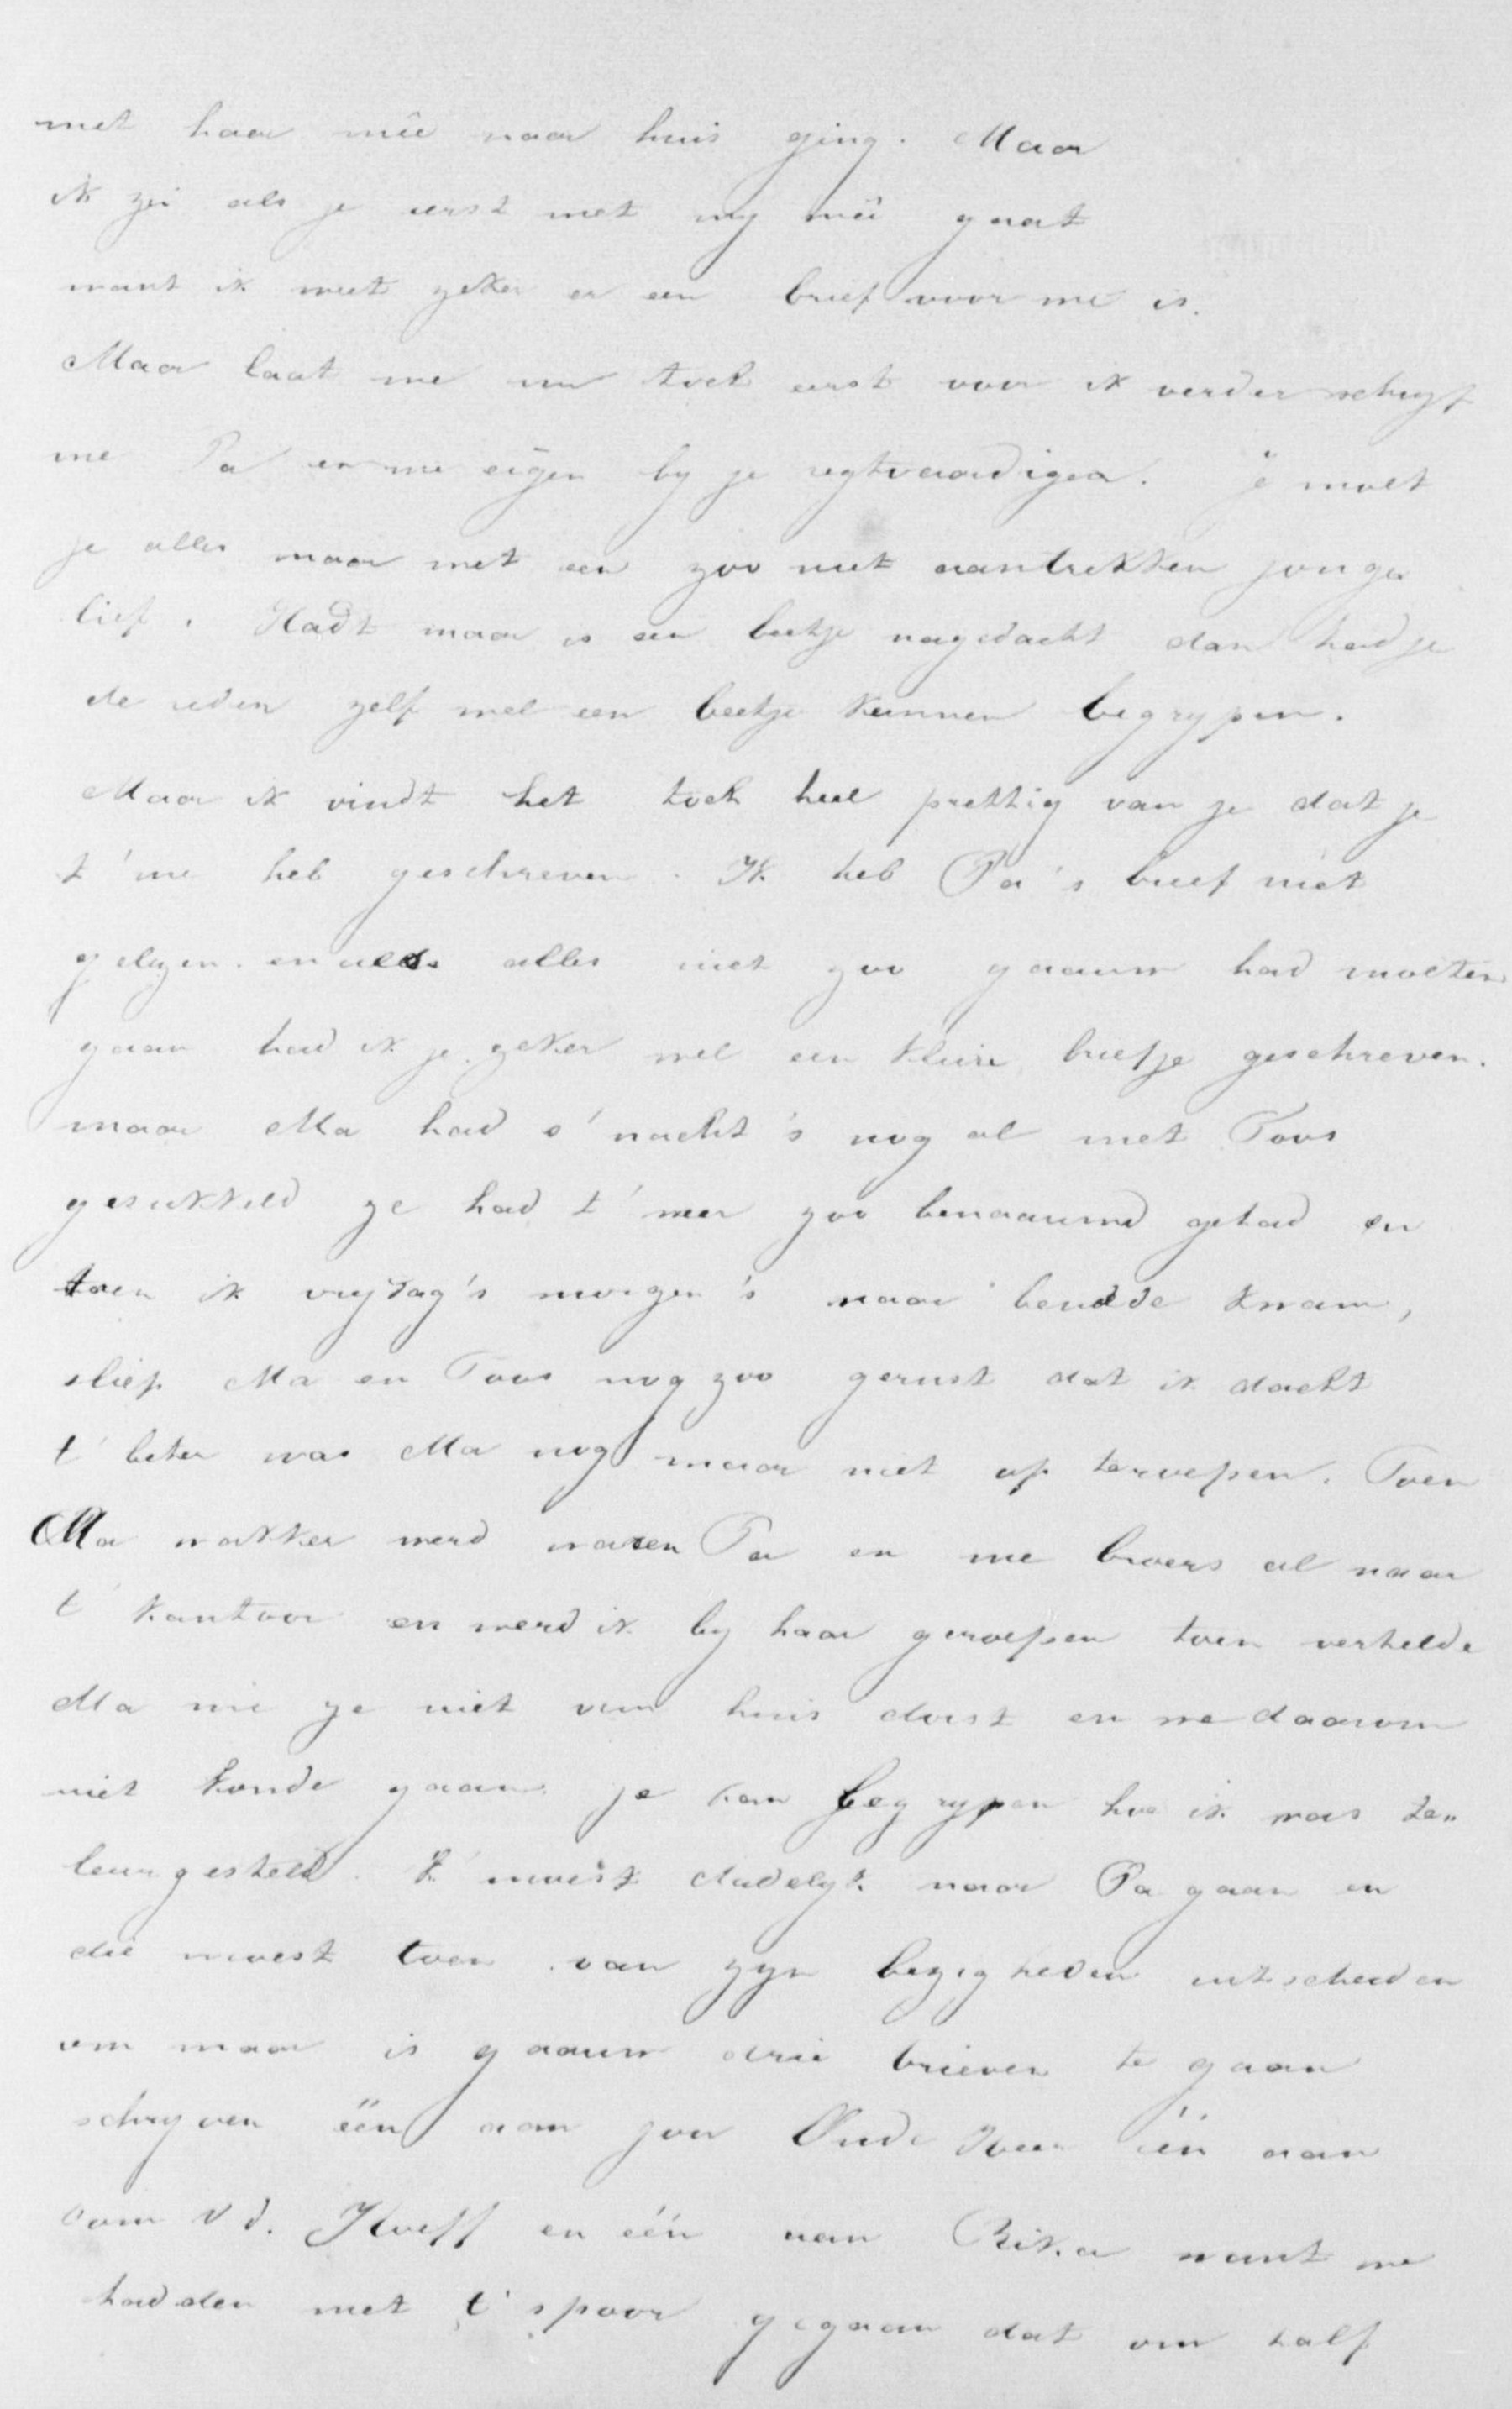 met haar meê naar huis ging. Maar
ik zei als je eerst met my meê gaat
want ik weet zeker er een brief voor me is.
Maar laat me nu toch eerst voor ik verder schryf
me Pa en me eigen by je regtvaardigen. Je moet
je alles maar met een zoo niet aantrekken jonge
lief. Hadt maar is een beetje nagedacht dan had je
de reden zelf wel een beetje kunnen begrypen.
Maar ik vindt het toch heel prettig van je dat je
t' me heb geschreven. Ik heb Pa's brief niet
gelezen. en als alles niet zoo gaauw had moeten
gaan had ik je zeker wel een klein briefje geschreven.
maar Ma had s'nacht's nog al met Toos
gesukkeld ze had t' weer zoo benaauwd gehad en
toen ik vrydag's morgen's naar benede kwam,
sliep Ma en Toos nog zoo gerust dat ik dacht
t' beter was Ma nog maar niet op teroepen. Toen
Ma wakker werd waren Pa en me broers al naar
t' kantoor en werd ik by haar geroepen toen vertelde
Ma me ze niet van huis dorst en we daarom
niet konde gaan je kan begrypen hoe ik was te„
leurgesteld. K' moest dadelyk naar Pa gaan en
die moest toen van zyn bezigheden uitscheiden
om maar is gaauw drie brieven te gaan
schryven één aan jou Oude Heer één aan
oom v d. Hoeff en één aan Rika want we
hadden met t' spoor gegaan dat om half